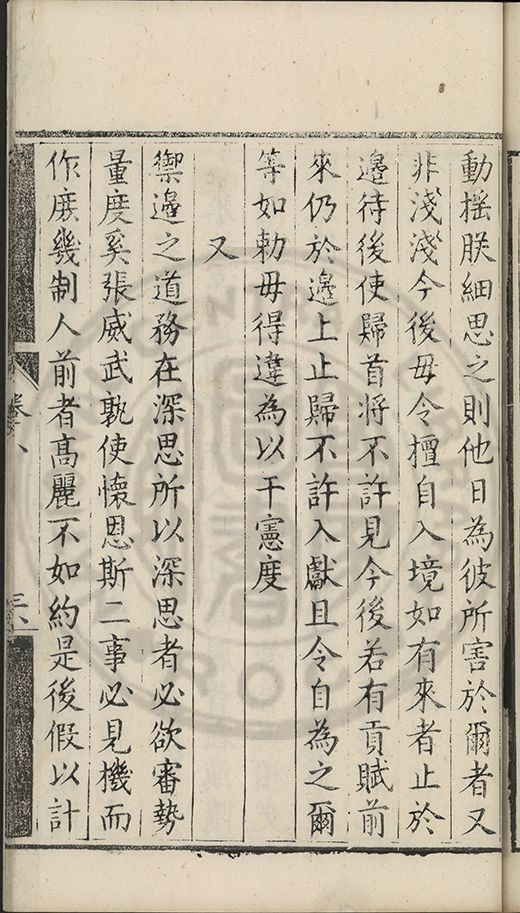 動揺朕細思之則他日為彼所害於爾者又
非淺淺今後毋令擅自入境如有來者止於
邊待後使歸首將不許見今後若有貢賦前
來仍於邊上止歸不許入獻且令自為之爾
等如勅毋得違為以干憲度
又
禦邊之道務在深思所以深思者必欲審勢
量度奚張威武孰使懷恩斯二事必見機而
作庻幾制人前者髙麗不如約是後假以計
卷八
三